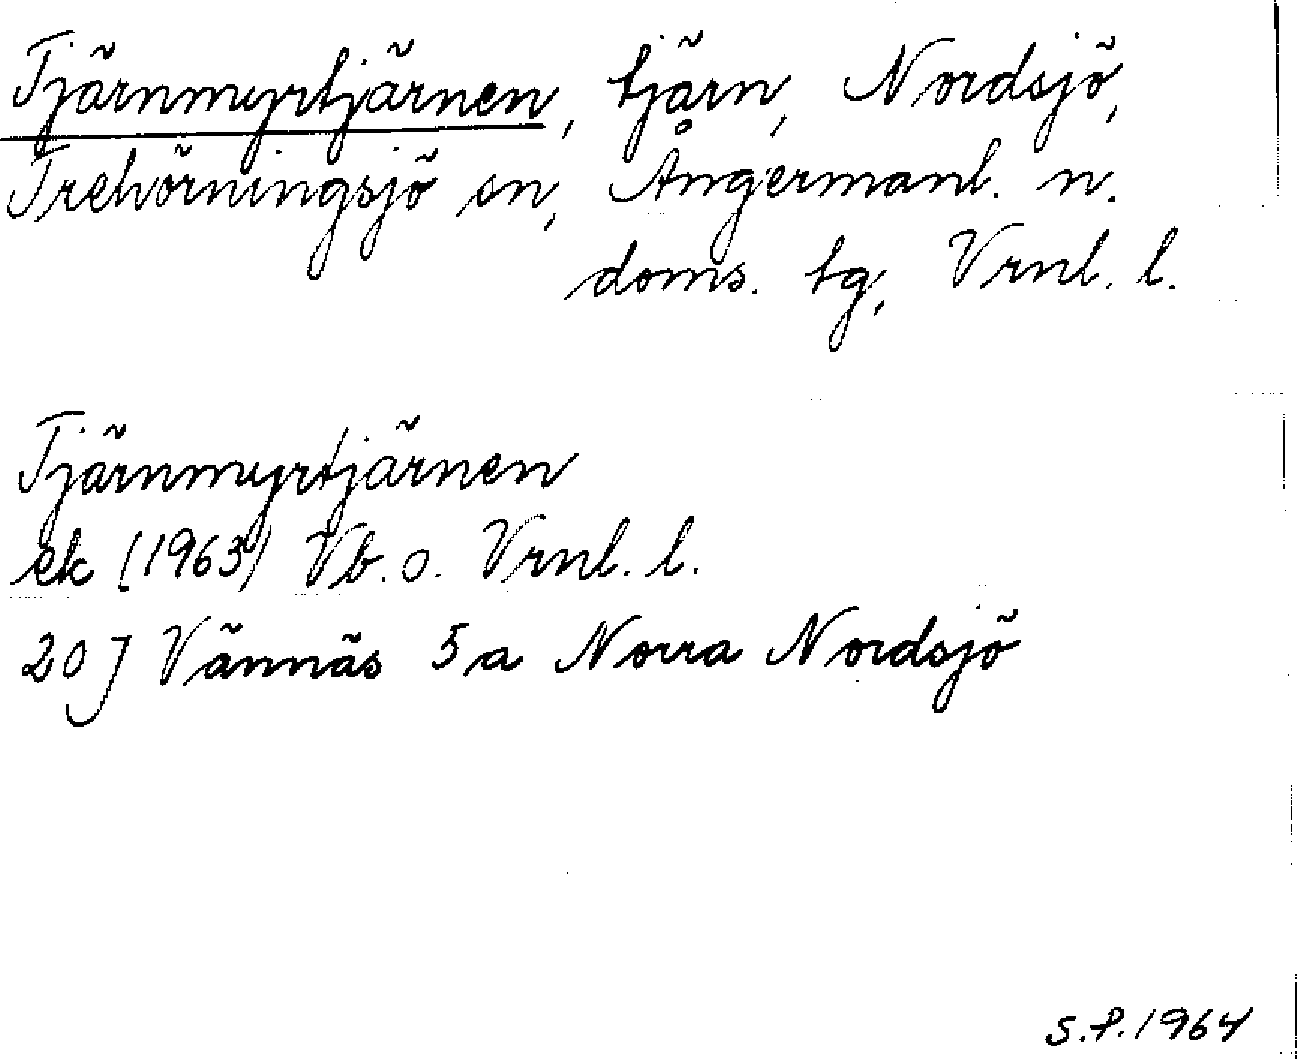 Tjärnmyrtjärnen, tjärn, Nordsjö,
Trehörningsjö sn, Ångermanl. n.
doms. tg, Vrnl. l.
Tjärnmyrtjärnen
ek (1963) Vb. o. Vrnl. l.
20J Vännäs 5a Norra Nordsjö
S.P. 1964